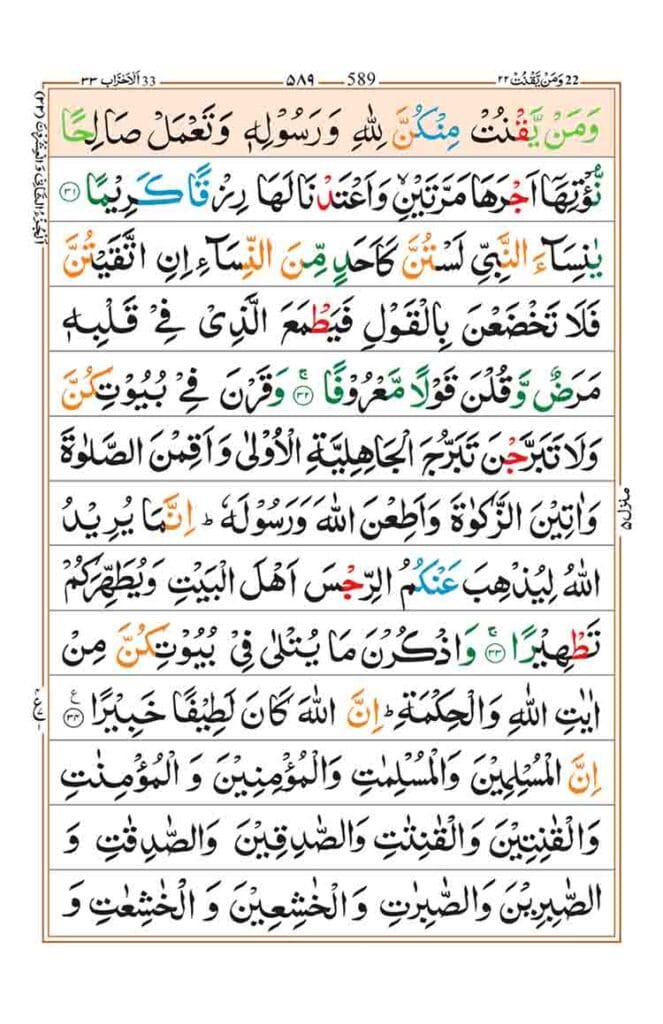 22 وَمَنْ يَّقْنُتْ ٢٢ 589 ٥٨٩ 33 اَلْاَحْزَاب ٣٣
وَمَنْ يَّقْنُتْ مِنْكُنَّ لِلّٰهِ وَرَسُوْلِهٖ وَتَعْمَلْ صَالِحًا
نُّؤْتِهَاۤ اَجْرَهَا مَرَّتَيْنِۙ وَاَعْتَدْنَا لَهَا رِزْقًا كَرِيْمًا ۝٣١
يٰنِسَآءَ النَّبِيِّ لَسْتُنَّ كَاَحَدٍ مِّنَ النِّسَآءِ اِنِ اتَّقَيْتُنَّ
فَلَا تَخْضَعْنَ بِالْقَوْلِ فَيَطْمَعَ الَّذِيْ فِيْ قَلْبِهٖ
مَرَضٌ وَّقُلْنَ قَوْلًا مَّعْرُوْفًا ۝٣٢ۚ وَقَرْنَ فِيْ بُيُوْتِكُنَّ
وَلَا تَبَرَّجْنَ تَبَرُّجَ الْجَاهِلِيَّةِ الْاُوْلٰى وَاَقِمْنَ الصَّلٰوةَ
وَاٰتِيْنَ الزَّكٰوةَ وَاَطِعْنَ اللّٰهَ وَرَسُوْلَهٗ ؕ اِنَّمَا يُرِيْدُ
اللّٰهُ لِيُذْهِبَ عَنْكُمُ الرِّجْسَ اَهْلَ الْبَيْتِ وَيُطَهِّرَكُمْ
تَطْهِيْرًا ۝٣٣ۚ وَاذْكُرْنَ مَا يُتْلٰى فِيْ بُيُوْتِكُنَّ مِنْ
اٰيٰتِ اللّٰهِ وَالْحِكْمَةِ ؕ اِنَّ اللّٰهَ كَانَ لَطِيْفًا خَبِيْرًا ۝٣٤ ع
اِنَّ الْمُسْلِمِيْنَ وَالْمُسْلِمٰتِ وَالْمُؤْمِنِيْنَ وَالْمُؤْمِنٰتِ
وَالْقٰنِتِيْنَ وَالْقٰنِتٰتِ وَالصّٰدِقِيْنَ وَالصّٰدِقٰتِ وَ
الصّٰبِرِيْنَ وَالصّٰبِرٰتِ وَالْخٰشِعِيْنَ وَالْخٰشِعٰتِ وَ
منزل ٥